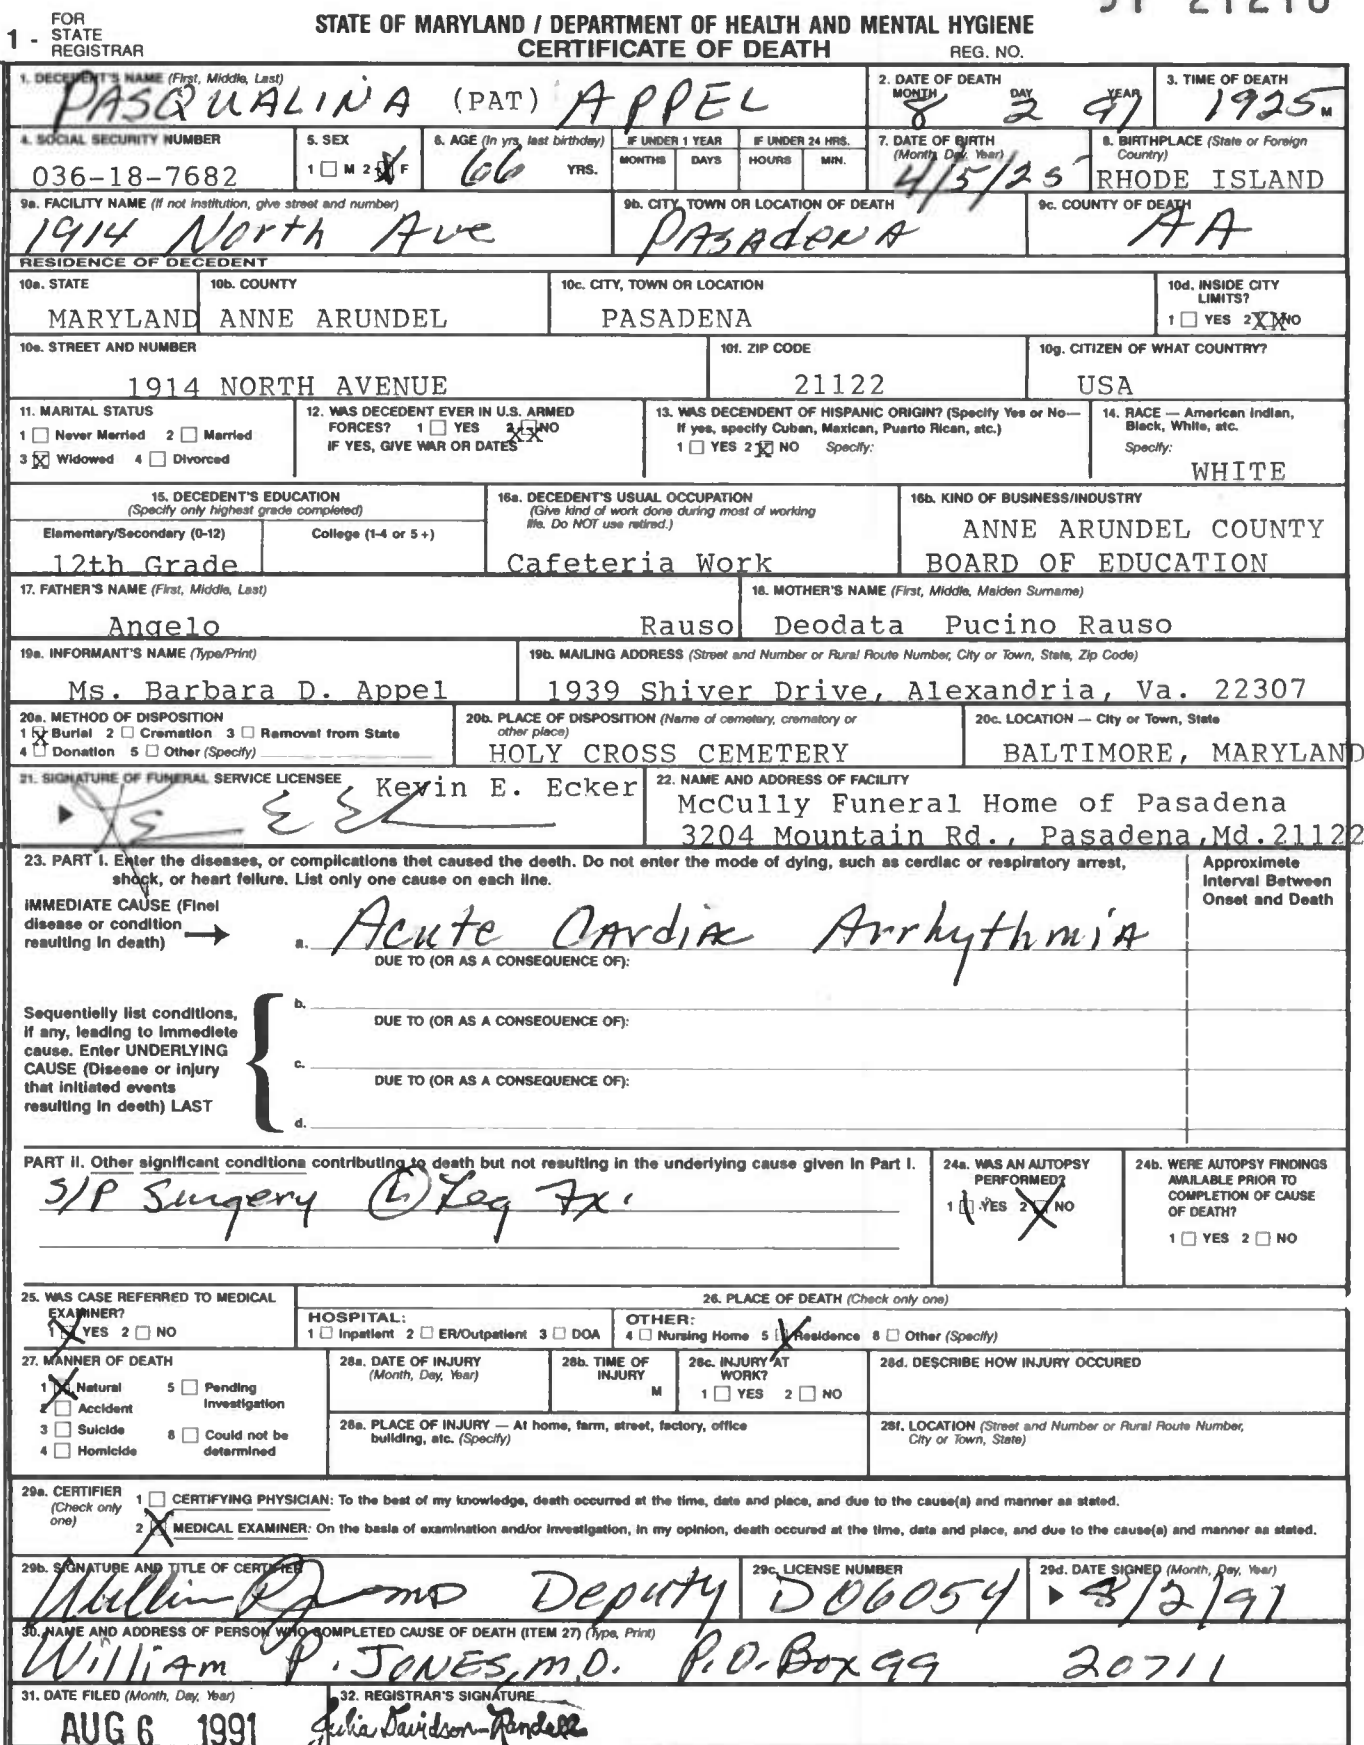 FOR STATE REGISTRAR
1 -
STATE OF MARYLAND / DEPARTMENT OF HEALTH AND MENTAL HYGIENE
CERTIFICATE OF DEATH
REG. NO.
1. DECEDENT'S NAME (First, Middle, Last)
PASQUALINA (PAT) APPEL
2. DATE OF DEATH
MONTH DAY YEAR
8 2 91
3. TIME OF DEATH
1925 M
4. SOCIAL SECURITY NUMBER
036-18-7682
5. SEX
1 ☐ M 2 ☒ F
6. AGE (In yrs. last birthday)
66 YRS.
IF UNDER 1 YEAR
MONTHS DAYS
IF UNDER 24 HRS.
HOURS MIN.
7. DATE OF BIRTH
(Month, Day, Year)
4/5/25
8. BIRTHPLACE (State or Foreign Country)
RHODE ISLAND
9a. FACILITY NAME (If not institution, give street and number)
1914 North Ave
9b. CITY, TOWN OR LOCATION OF DEATH
PASAdENA
9c. COUNTY OF DEATH
AA
RESIDENCE OF DECEDENT
10a. STATE
MARYLAND
10b. COUNTY
ANNE ARUNDEL
10c. CITY, TOWN OR LOCATION
PASADENA
10d. INSIDE CITY LIMITS?
1 ☐ YES 2 XX NO
10e. STREET AND NUMBER
1914 NORTH AVENUE
10f. ZIP CODE
21122
10g. CITIZEN OF WHAT COUNTRY?
USA
11. MARITAL STATUS
1 ☐ Never Married 2 ☐ Married
3 ☒ Widowed 4 ☐ Divorced
12. WAS DECEDENT EVER IN U.S. ARMED
FORCES? 1 ☐ YES 2 ☐ NO
XX
IF YES, GIVE WAR OR DATES
13. WAS DECENDENT OF HISPANIC ORIGIN? (Specify Yes or No—
If yes, specify Cuban, Maxican, Puarto Rican, atc.)
1 ☐ YES 2 ☒ NO Specify:
14. RACE — American Indian, Black, White, atc.
Specify:
WHITE
15. DECEDENT'S EDUCATION
(Specify only highest grade completed)
Elamentary/Secondary (0-12)
12th Grade
College (1-4 or 5+)
16a. DECEDENT'S USUAL OCCUPATION
(Give kind of work done during most of working
life. Do NOT use retired.)
Cafeteria Work
16b. KIND OF BUSINESS/INDUSTRY
ANNE ARUNDEL COUNTY
BOARD OF EDUCATION
17. FATHER'S NAME (First, Middle, Last)
Angelo Rauso
18. MOTHER'S NAME (First, Middle, Maiden Surname)
Deodata Pucino Rauso
19a. INFORMANT'S NAME (Type/Print)
Ms. Barbara D. Appel
19b. MAILING ADDRESS (Street and Number or Rural Route Number, City or Town, State, Zip Code)
1939 Shiver Drive, Alexandria, Va. 22307
20a. METHOD OF DISPOSITION
1 ☒ Burial 2 ☐ Cremation 3 ☐ Ramoval from State
4 ☐ Donation 5 ☐ Othar (Specify)
20b. PLACE OF DISPOSITION (Name of cematary, crematory or
other place)
HOLY CROSS CEMETERY
20c. LOCATION — City or Town, State
BALTIMORE, MARYLAND
21. SIGNATURE OF FUNERAL SERVICE LICENSEE
Kevin E. Ecker
22. NAME AND ADDRESS OF FACILITY
McCully Funeral Home of Pasadena
3204 Mountain Rd., Pasadena,Md.21122
23. PART I. Enter the diseases, or complications thet caused the deeth. Do not enter the mode of dying, such as cerdiac or respiratory arrest,
shock, or heart feilure. List only one cause on each line.
Approximete
Interval Between
Onset and Death
IMMEDIATE CAUSE (Finel
disease or condition
resulting in death)
a. Acute CArdiac ArrhythmiA
DUE TO (OR AS A CONSEQUENCE OF):
Sequentielly list conditions,
if any, leading to immediete
cause. Enter UNDERLYING
CAUSE (Diseese or injury
that initiated events
resulting in deeth) LAST
b.
DUE TO (OR AS A CONSEQUENCE OF):
c.
DUE TO (OR AS A CONSEQUENCE OF):
d.
PART II. Other significant conditions contributing to death but not resulting in the underlying cause given in Part I.
S/P Surgery (L) Leg Fx.
24a. WAS AN AUTOPSY
PERFORMED?
1 ☐ YES 2 ☒ NO
24b. WERE AUTOPSY FINDINGS
AVAILABLE PRIOR TO
COMPLETION OF CAUSE
OF DEATH?
1 ☐ YES 2 ☐ NO
25. WAS CASE REFERRED TO MEDICAL
EXAMINER?
1 ☒ YES 2 ☐ NO
26. PLACE OF DEATH (Check only one)
HOSPITAL:
1 ☐ Inpatient 2 ☐ ER/Outpatient 3 ☐ DOA
OTHER:
4 ☐ Nursing Home 5 ☒ Residence 8 ☐ Other (Specify)
27. MANNER OF DEATH
1 ☒ Natural 5 ☐ Pending Investigation
2 ☐ Accident
3 ☐ Suicide 8 ☐ Could not be determined
4 ☐ Homicide
28a. DATE OF INJURY
(Month, Day, Year)
28b. TIME OF INJURY
M
28c. INJURY AT WORK?
1 ☐ YES 2 ☐ NO
28d. DESCRIBE HOW INJURY OCCURED
28a. PLACE OF INJURY — At home, farm, street, factory, office
building, atc. (Specify)
28f. LOCATION (Street and Number or Rural Route Number,
City or Town, State)
29a. CERTIFIER
(Check only one)
1 ☐ CERTIFYING PHYSICIAN: To the best of my knowledge, death occurred at the time, date and place, and due to the cause(a) and manner aa stated.
2 ☒ MEDICAL EXAMINER: On the basia of examination and/or investigation, in my opinion, death occured at the time, data and place, and due to the cause(a) and manner aa stated.
29b. SIGNATURE AND TITLE OF CERTIFIER
William P Jones MD Deputy
29c. LICENSE NUMBER
D06054
29d. DATE SIGNED (Month, Day, Year)
8/2/91
30. NAME AND ADDRESS OF PERSON WHO COMPLETED CAUSE OF DEATH (ITEM 27) (Type, Print)
William P. JONES, M.D. P.O. Box 99 20711
31. DATE FILED (Month, Day, Year)
AUG 6 1991
32. REGISTRAR'S SIGNATURE
Julia Davidson-Randall